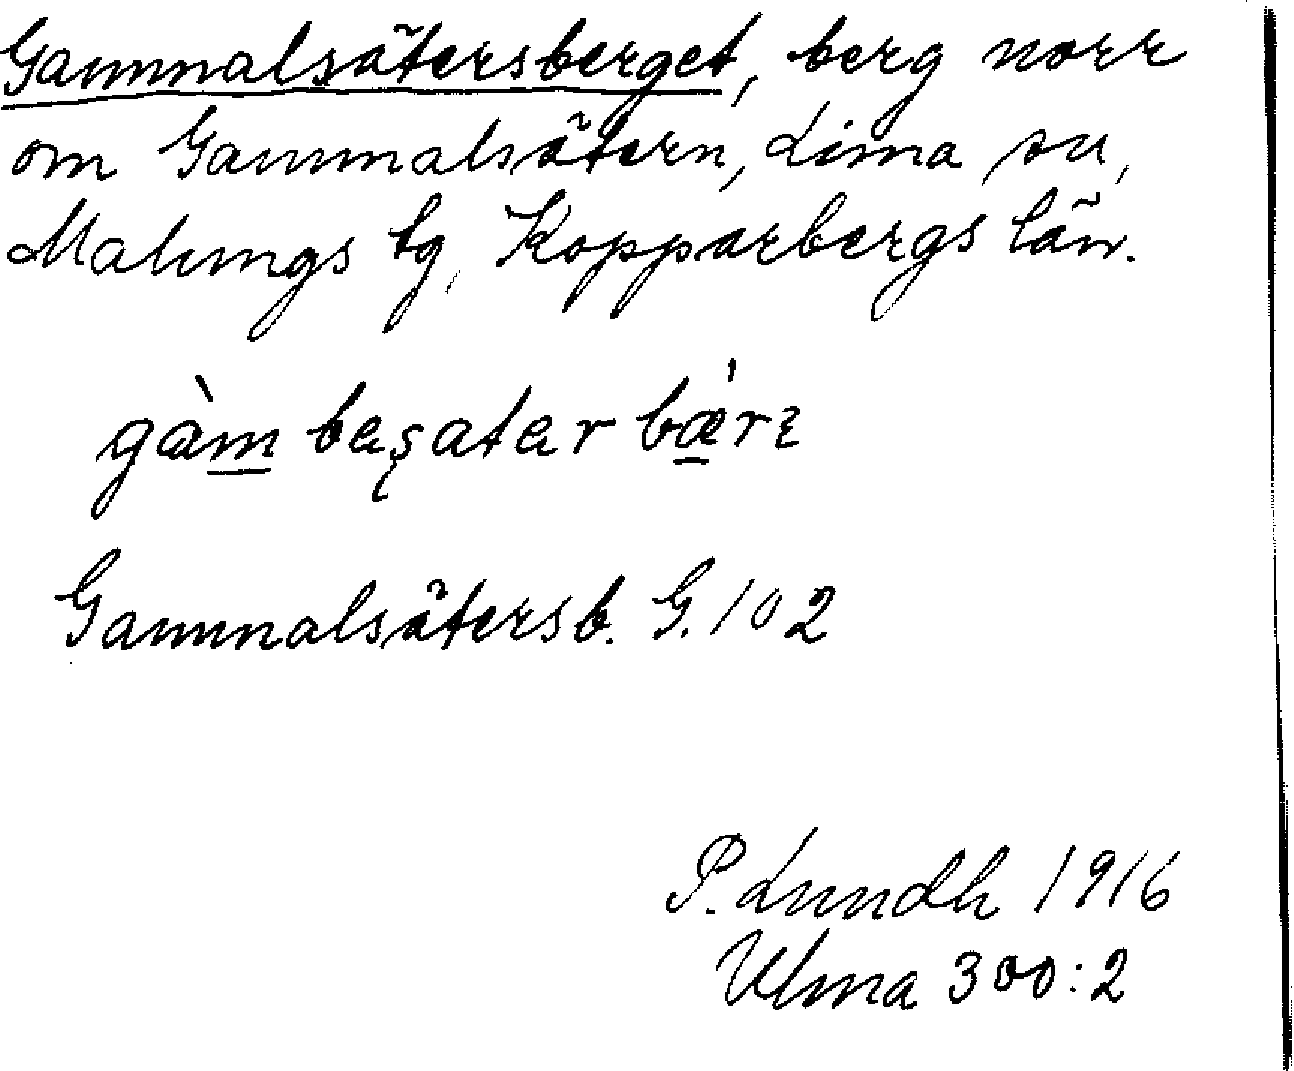 Gammalsätersberget, berg norr
om Gammalsätern, Lima sn,
Malungs tg, Kopparbergs län.
gàm beʂater bæ̀rɛ
Gammalsätersb. G. 102
P. Lundh 1916
Ulma 300:2